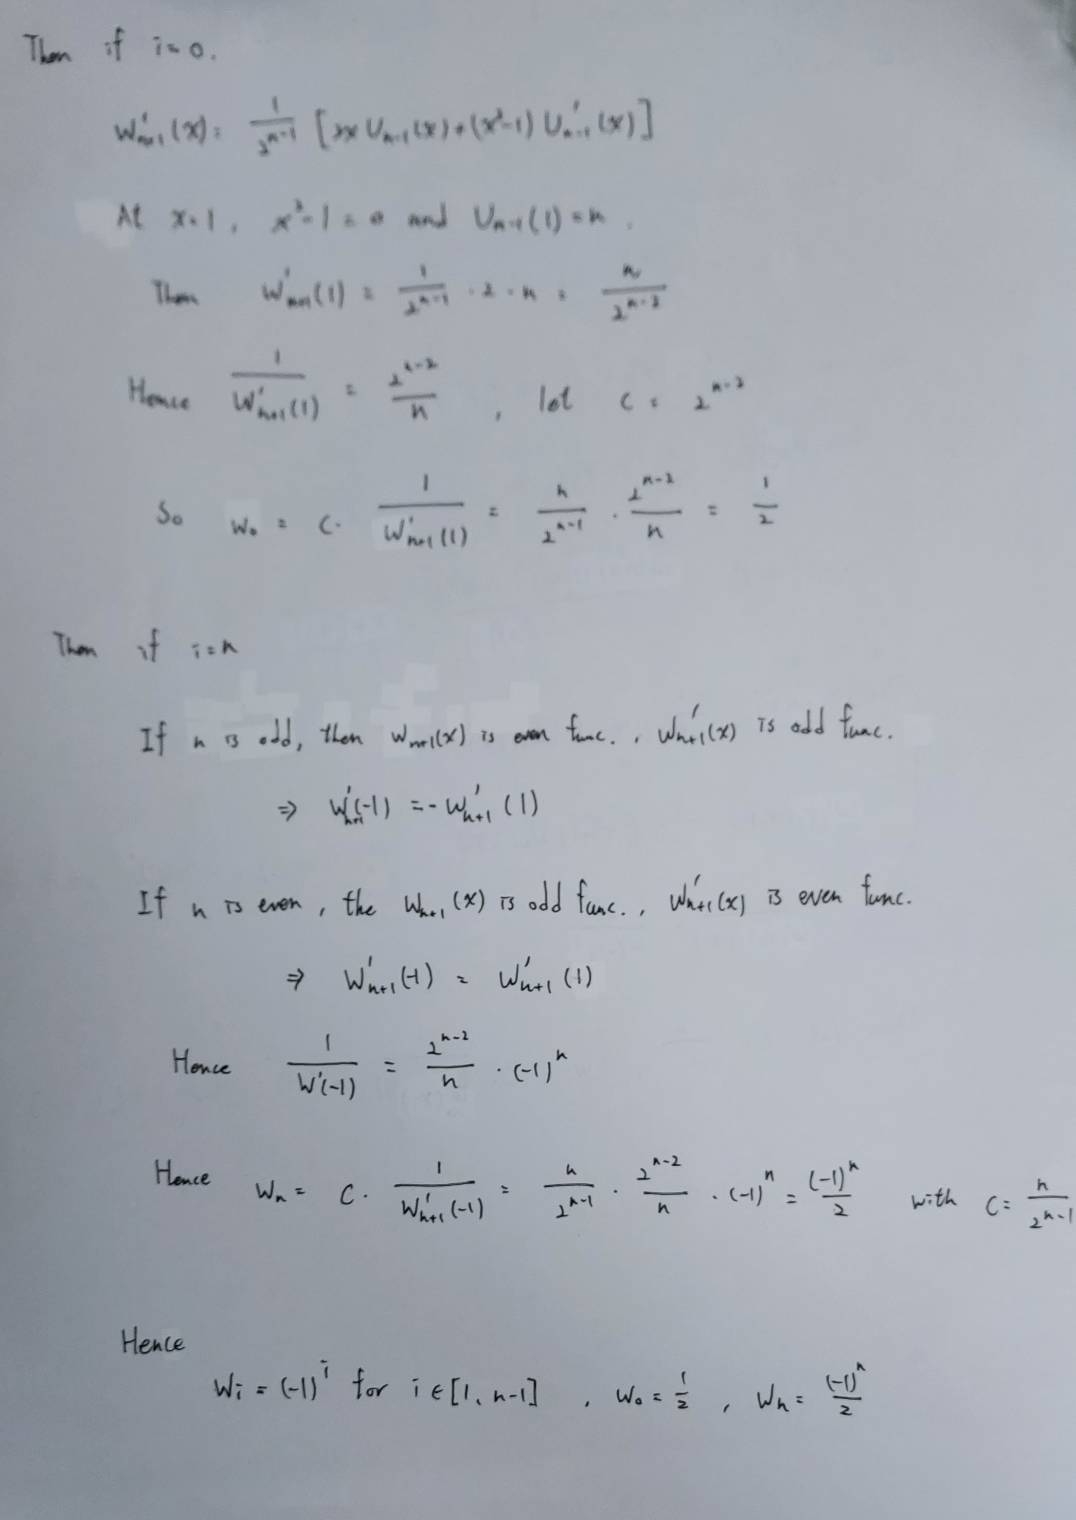 Then if i=0.
W'ₙ₊₁(x) = 1/2ⁿ⁻¹ [2x Uₙ₋₁(x) + (x²-1) U'ₙ₋₁(x)]
At x=1, x²-1=0 and Uₙ₋₁(1)=n.
Then W'ₙ₊₁(1) = 1/2ⁿ⁻¹ · 2 · n = n/2ⁿ⁻²
Hence 1/W'ₙ₊₁(1) = 2ⁿ⁻²/n , let C = 2ⁿ⁻²
So W₀ = C · 1/W'ₙ₊₁(1) = n/2ⁿ⁻¹ · 2ⁿ⁻²/n = 1/2
Then if i=n
If n is odd, then Wₙ₊₁(x) is even func. , W'ₙ₊₁(x) is odd func.
⇒ W'ₙ₊₁(-1) = -W'ₙ₊₁(1)
If n is even, the Wₙ₊₁(x) is odd func. , W'ₙ₊₁(x) is even func.
⇒ W'ₙ₊₁(-1) = W'ₙ₊₁(1)
Hence 1/W'(-1) = 2ⁿ⁻²/n · (-1)ⁿ
Hence Wₙ = C · 1/W'ₙ₊₁(-1) = n/2ⁿ⁻¹ · 2ⁿ⁻²/n · (-1)ⁿ = (-1)ⁿ/2 with C = n/2ⁿ⁻¹
Hence
Wᵢ = (-1)ⁱ for i∈[1, n-1] , W₀ = 1/2 , Wₙ = (-1)ⁿ/2